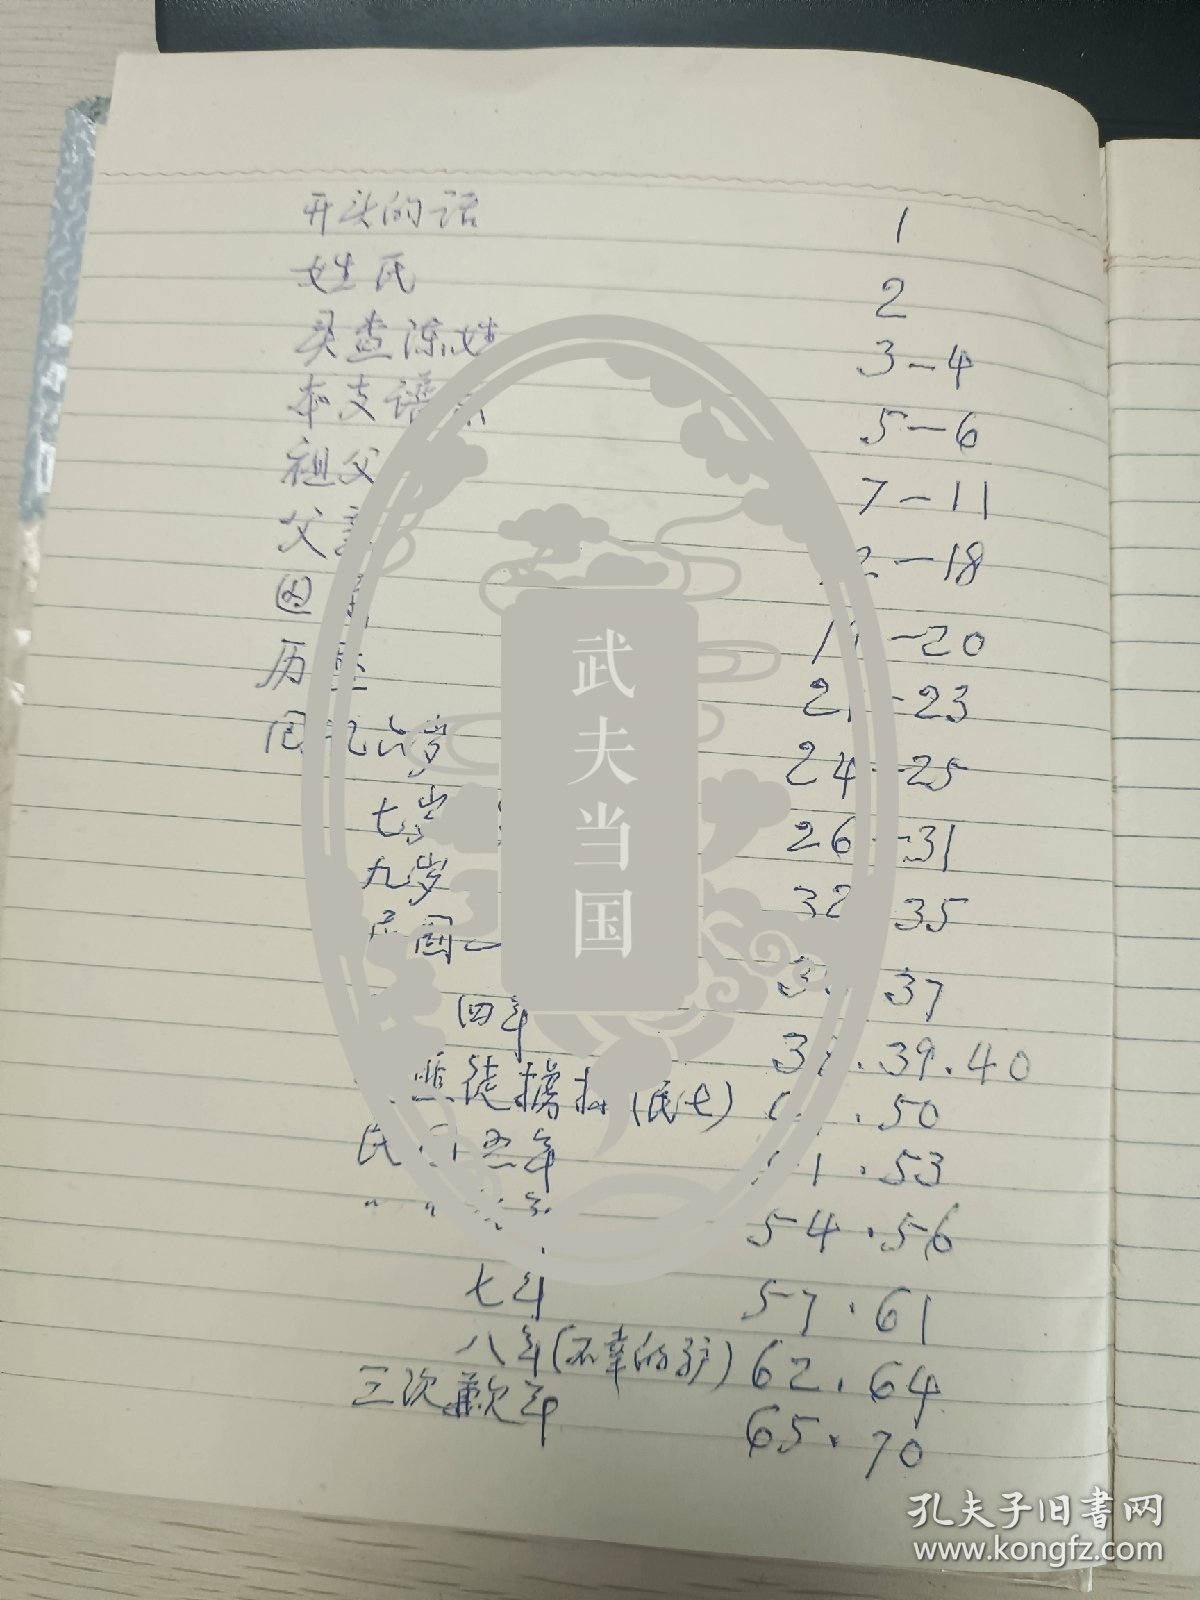 开头的话 1
姓氏 2
寻查陈姓 3-4
本支谱 5-6
祖父 7-11
父 2-18
-20
历 2 -23
回忆六岁 24-25
七岁 26-31
九岁 32 35
民国 3 37
四年 3 .39.40
匪徒掳 (民七) .50
民国五年 1.53
〃 〃 54.56
七年 57.61
八年(不幸的驴) 62.64
三次歉年 65.70
武夫当国
孔夫子旧书网
www.kongfz.com